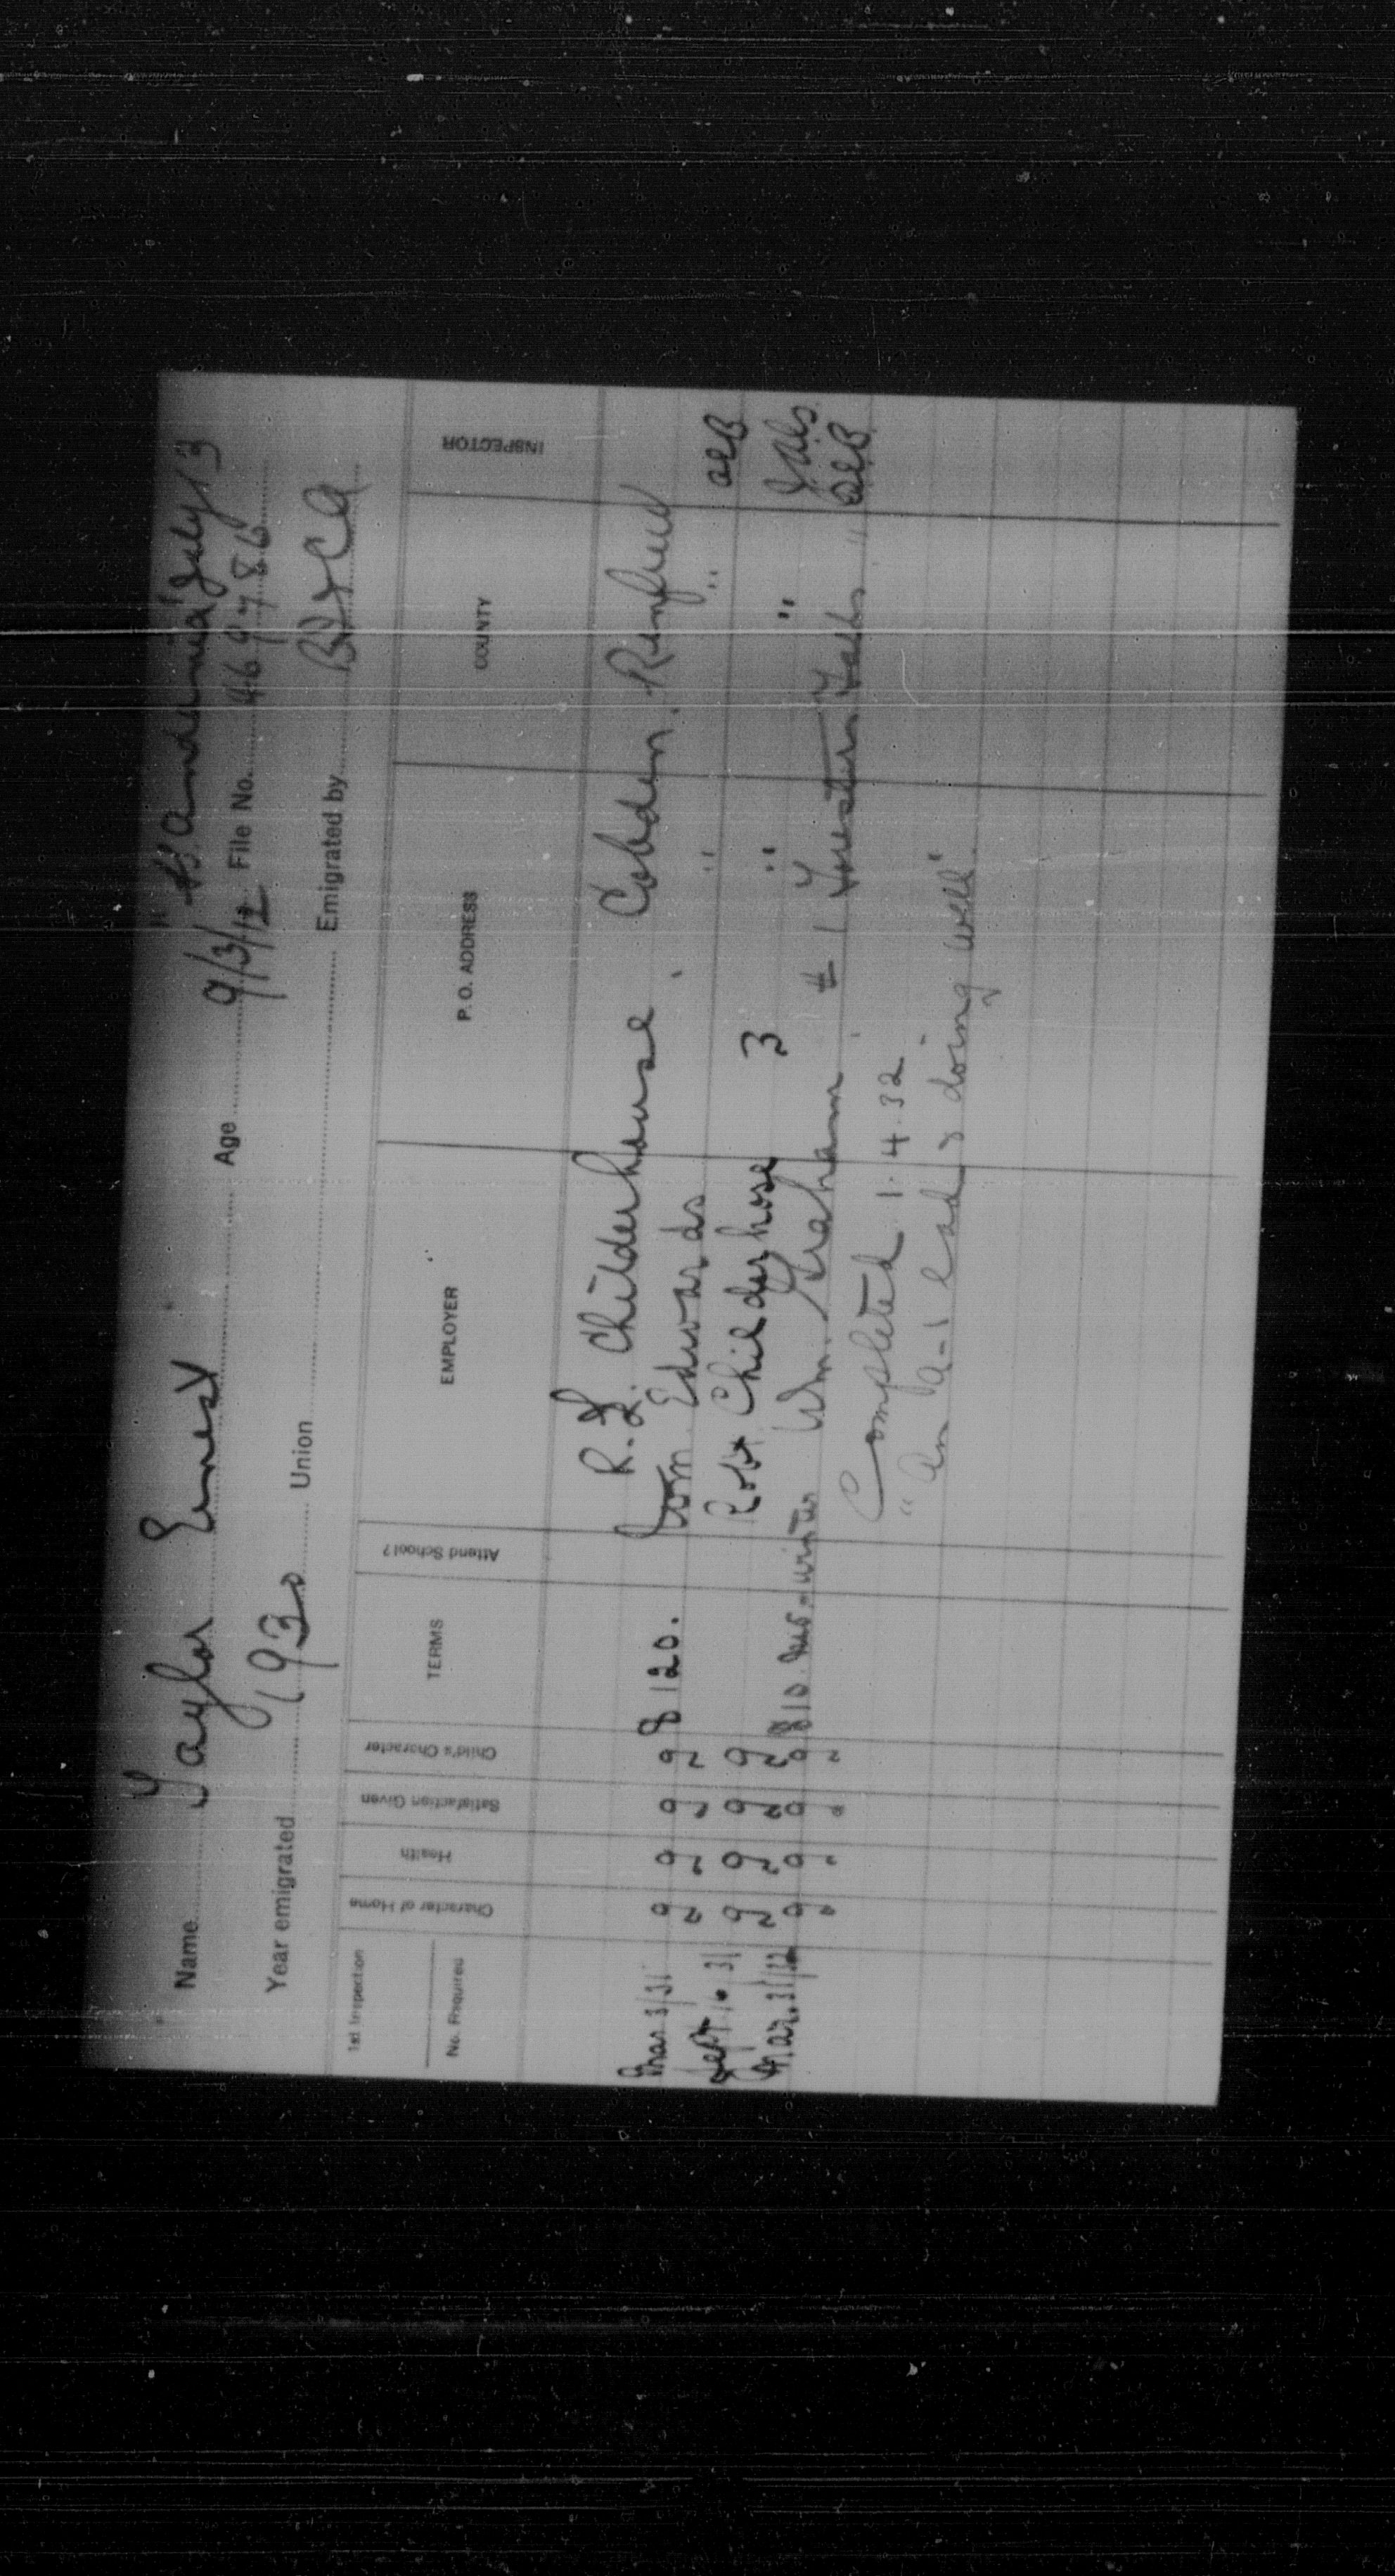 "Andania" July 13
Name Taylor Ernest Age 9/3/12 File No. 469786
Year emigrated 1930 Union Emigrated by B I C A
1st Inspection
No. Required
Character of Home Health Satisfaction Given Child's Character TERMS Attend School? EMPLOYER P. O. ADDRESS COUNTY INSPECTOR
R. L. Childerhouse Cobden Renfrew
Mar 3/31 g g g g $120. Tom Edwards " "
Sept 16 31 g g g g Robt Childerhose 3 " "
Mar. 31/32 g g g g $10 winter Wm. Graham # 1 Foresters Falls "
Completed 1.4.32
"An A-1 lad & doing well".